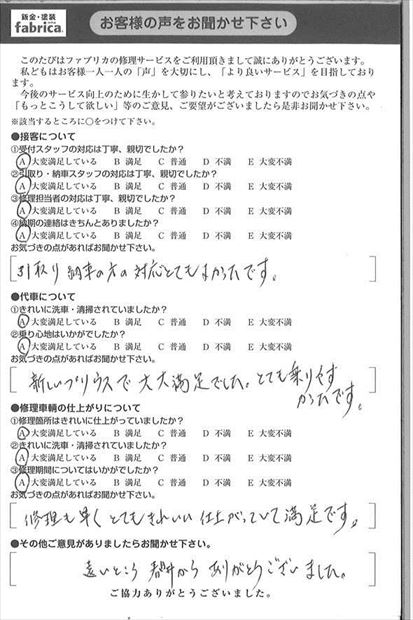 鈑金・塗装
fabrica.
お客様の声をお聞かせ下さい
このたびはファブリカの修理サービスをご利用頂きまして誠にありがとうございます。
私どもはお客様一人一人の「声」を大切にし、「より良いサービス」を目指しております。
今後のサービス向上のために生かして参りたいと考えておりますのでお気づきの点や
「もっとこうして欲しい」等のご意見、ご要望がございましたら是非お聞かせ下さい。
※該当するところに○をつけて下さい。
●接客について
①受付スタッフの対応は丁寧、親切でしたか？
A 大変満足している B 満足 C 普通 D 不満 E 大変不満
②引取り・納車スタッフの対応は丁寧、親切でしたか？
A 大変満足している B 満足 C 普通 D 不満 E 大変不満
③修理担当者の対応は丁寧、親切でしたか？
A 大変満足している B 満足 C 普通 D 不満 E 大変不満
④納期の連絡はきちんとありましたか？
A 大変満足している B 満足 C 普通 D 不満 E 大変不満
お気づきの点があればお聞かせ下さい。
引取り 納車の方の対応とてもよかたです。
●代車について
①きれいに洗車・清掃されていましたか？
A 大変満足している B 満足 C 普通 D 不満 E 大変不満
②乗り心地はいかがでしたか？
A 大変満足している B 満足 C 普通 D 不満 E 大変不満
お気づきの点があればお聞かせ下さい。
新しいプリウスで 大大満足でした。とても乗りやす
かったです。
●修理車輌の仕上がりについて
①修理箇所はきれいに仕上がっていましたか？
A 大変満足している B 満足 C 普通 D 不満 E 大変不満
②きれいに洗車・清掃されていましたか？
A 大変満足している B 満足 C 普通 D 不満 E 大変不満
③修理期間についてはいかがでしたか？
A 大変満足している B 満足 C 普通 D 不満 E 大変不満
お気づきの点があればお聞かせ下さい。
修理も早く とてもきれいい 仕上がっていて 満足です。
●その他ご意見がありましたらお聞かせ下さい。
遠いところ から ありがとうございました。
ご協力ありがとうございました。